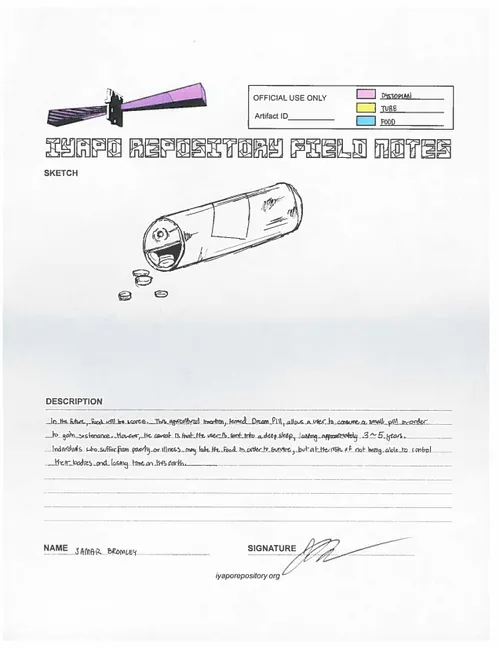 OFFICIAL USE ONLY
Artifact ID
DYSTOPIAN
TUBE
FOOD
IYAPO REPOSITORY FIELD NOTES
SKETCH
DESCRIPTION
In the future, food will be scarce. This agricultural invention, termed Dream Pill, allows a user to consume a small pill in order
to gain sustenance. However, the caveat is that the user is sent into a deep sleep, lasting approximately 3~5 years.
Individuals who suffer from poverty or illness may take the food in order to survive, but at the risk of not being able to control
their bodies and losing time on this earth.
NAME SAMAR BROMLEY
SIGNATURE
iyaporepository.org